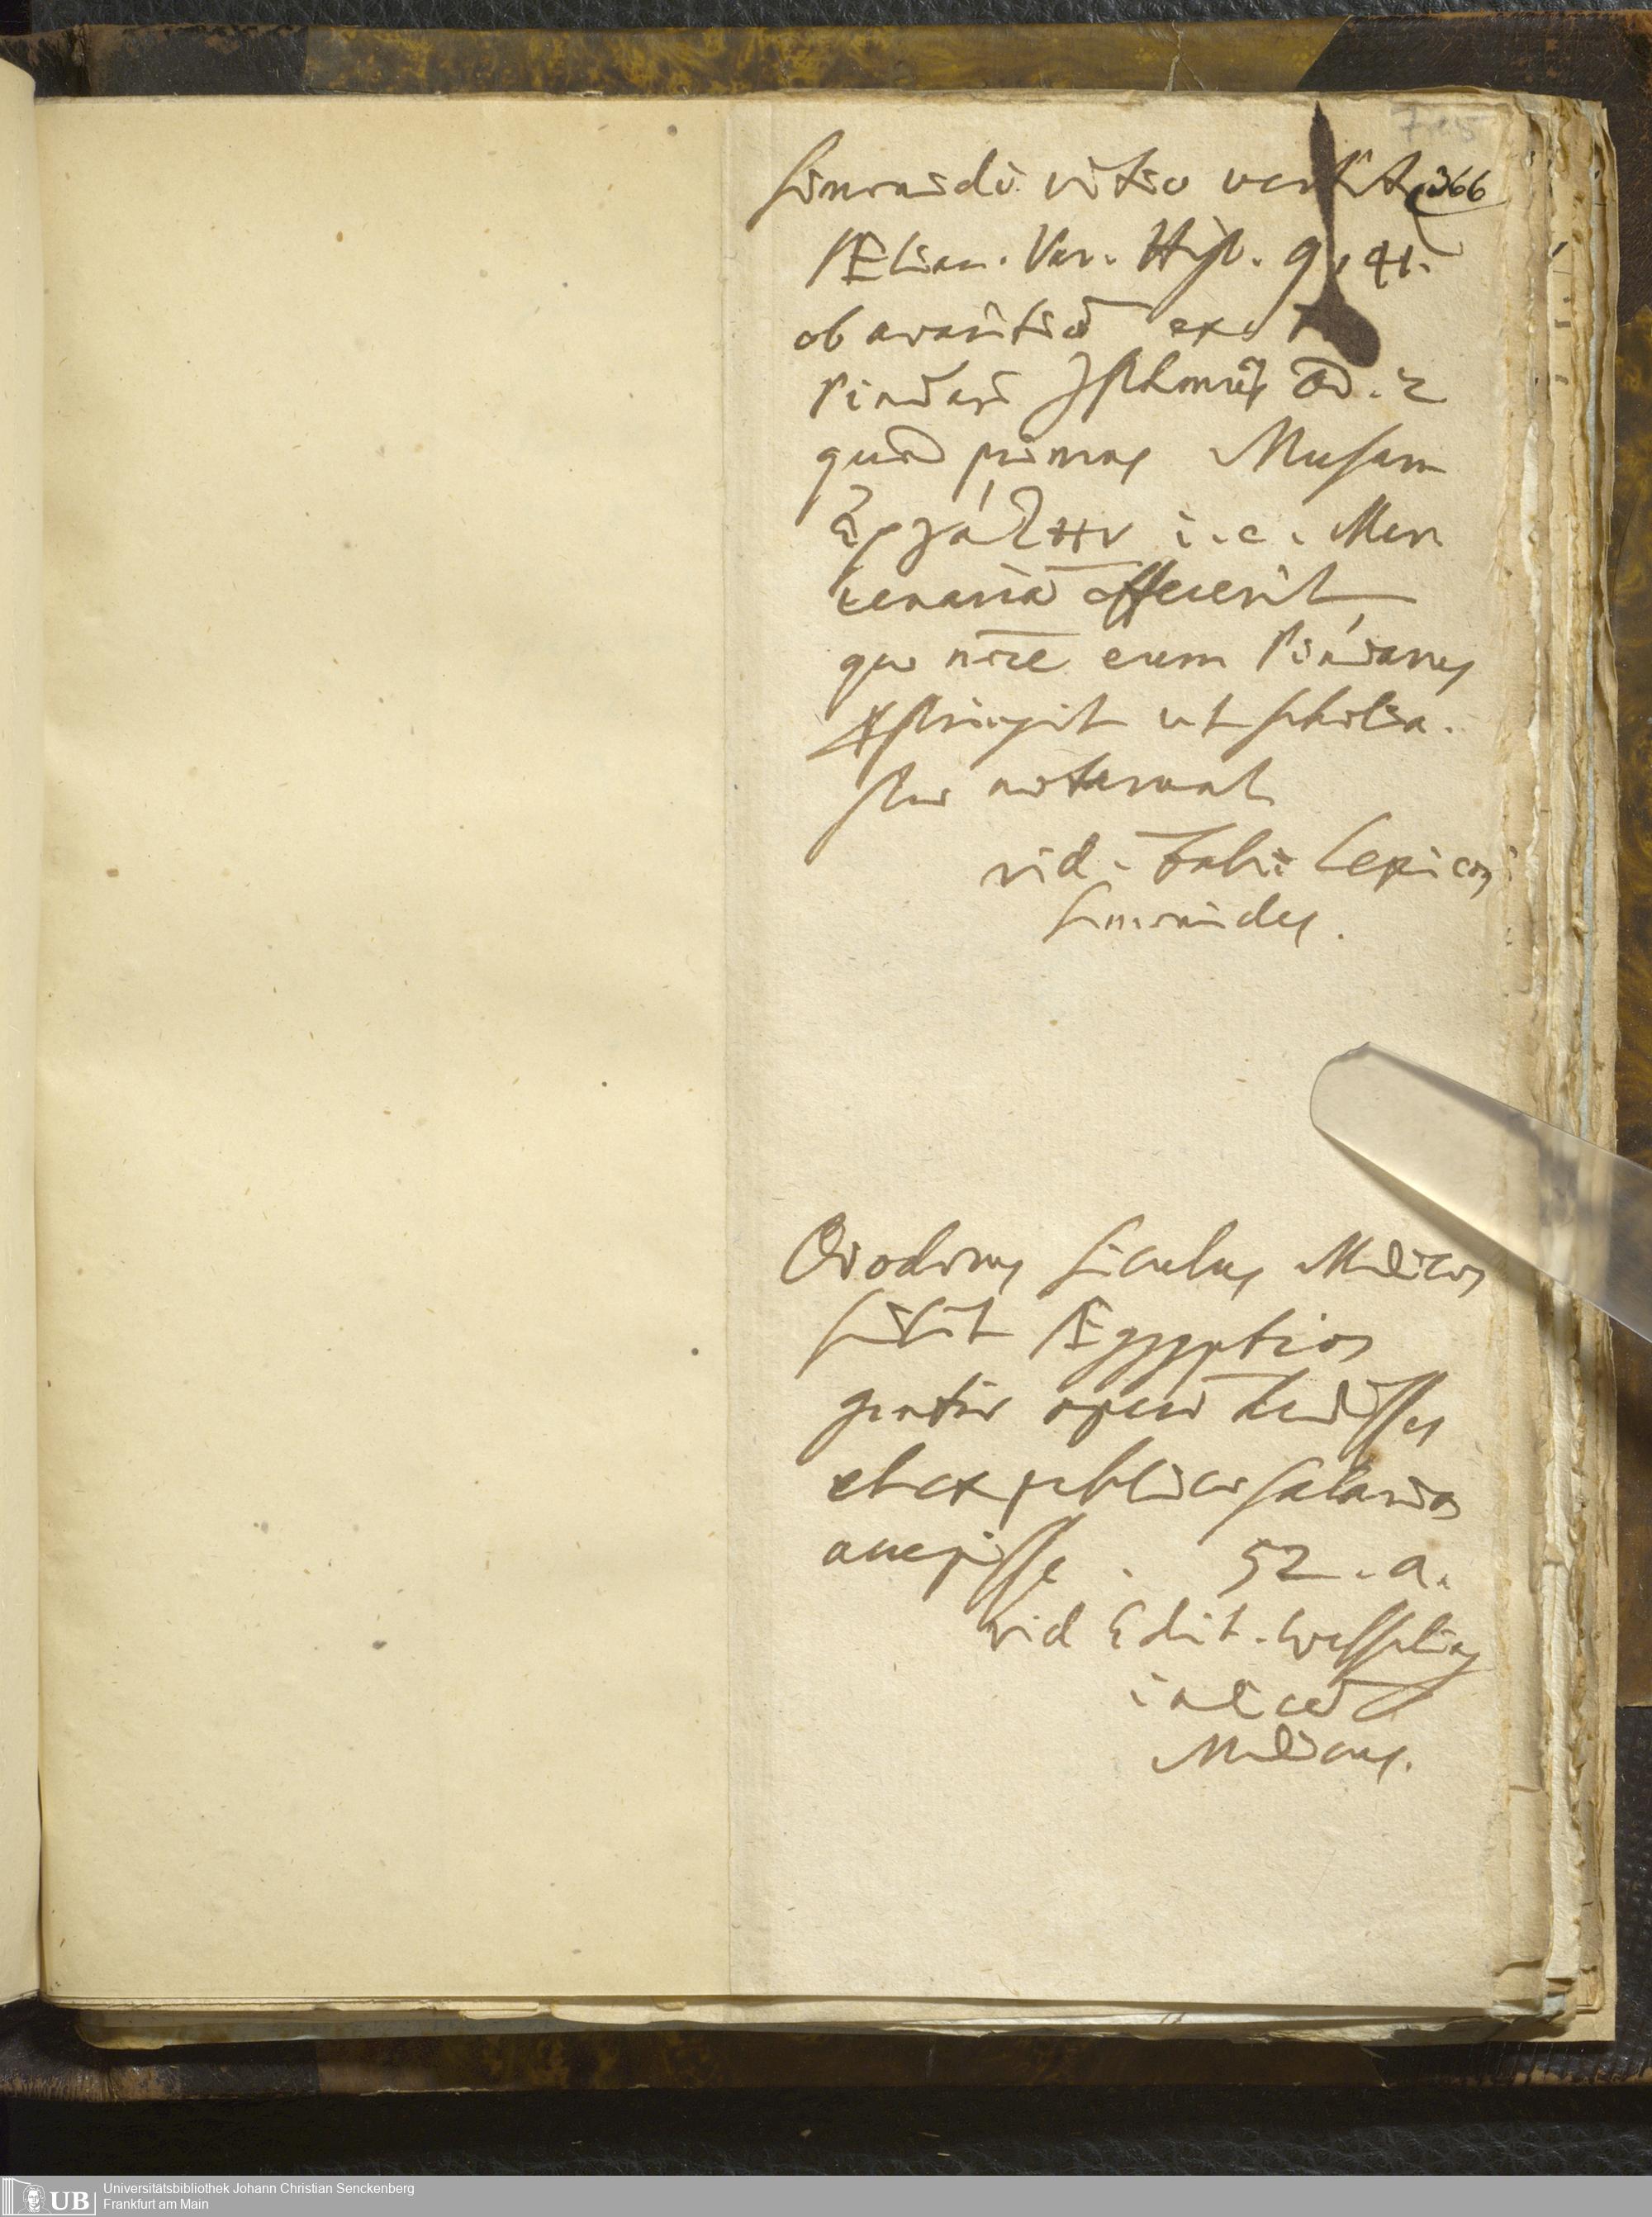 Simonidi vitio vertit 366
Ælian. Var. Hist. 9, 41.
ob avaritiā ex
Pindari Isthmiis Od. 2
quod primus Musam
ἐργάτην i. e. Mer
cenariā effecerit
quo noīe eum Pindarus
perstringit ut scholia.
stae notarunt
vid. Fabri Lexicon
Simonides.
Diodorus Siculus Medicos
scribit Ægyptios
gentis apud
et ex publico salarios
accepisse. 52. a.
vid Edit. Wesseling
indice
Medicus.
Universitätsbibliothek Johann Christian Senckenberg
Frankfurt am Main
UB